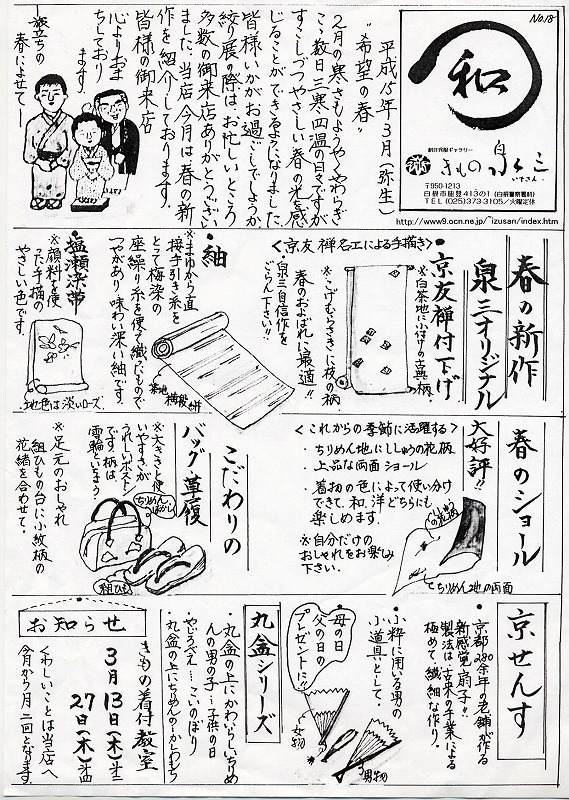 No.18
和
新作呉服ギャラリー
きもの 泉三
いずさん
〒950-1213
白根市能登413の1(白根警察署向)
TEL (025)373-3105/火曜定休
http://www9.ocn.ne.jp/~izusan/index.htm
平成15年3月(弥生)
"希望の春"
2月の寒さもようやくやわらぎ
ここ数日三寒四温の日ですが
すこしづつやさしい春の光を感
じることができるようになりました。
皆様いかがお過ごしでしょうか
絞り展の際は、お忙しいところ
多数の御来店ありがとうござい
ました。当店今月は春の新
作を紹介しております。
皆様の御来店
心よりおま
ちしており
ます。
旅立ちの
春によせて
春の新作
泉三オリジナル
・京友禅付下げ
<京友禅名工による手描き>
※白茶地に小付けの古典柄
※こげむらさきに枝の柄
春のおよばれに最適!!
・泉三自信作を
ごらん下さい!!
・紬
※まゆから直
接手引き糸を
とって梅染の
座繰り糸を使って織ったもので
つやがあり味わい深い紬です。
・塩瀬染帯
※顔料を使
った手描の
やさしい色です。
地色は淡いローズ
春のショール
大好評!!
<これからの季節に活躍する>
・ちりめん地にししゅうの花柄
・上品な両面ショール
・着物の色によって使い分け
できて、和、洋どちらにも
楽しめます。
※自分だけの
おしゃれをお楽しみ
下さい。
ちりめん地の両面
こだわりの
バッグ、草履
※大きさと使
いやすさが
うれしいボストン
です。柄は、
雪輪といまよう
※足元のおしゃれ
組ひもの台に小紋柄の
花緒を合わせて。
ちりめん
ぼかし
組ひも
京せんす
・京都280余年の老舗が作る
新感覚扇子!!
製法は古来の手業による
極めて繊細な作り。
・小粋に用いる男の
小道具として。
・母の日
父の日の
プレゼントに!!
女物
男物
丸盆シリーズ
・丸盆の上にかわいらしいちりめ
んの男の子…子供の日
・やじろべえ…こいのぼり
・丸盆の上にちりめんの…かしわもち
お知らせ
きもの着付教室
3月13日(木)
27日(木)
くわしいことは当店へ
今月から月二回となります。